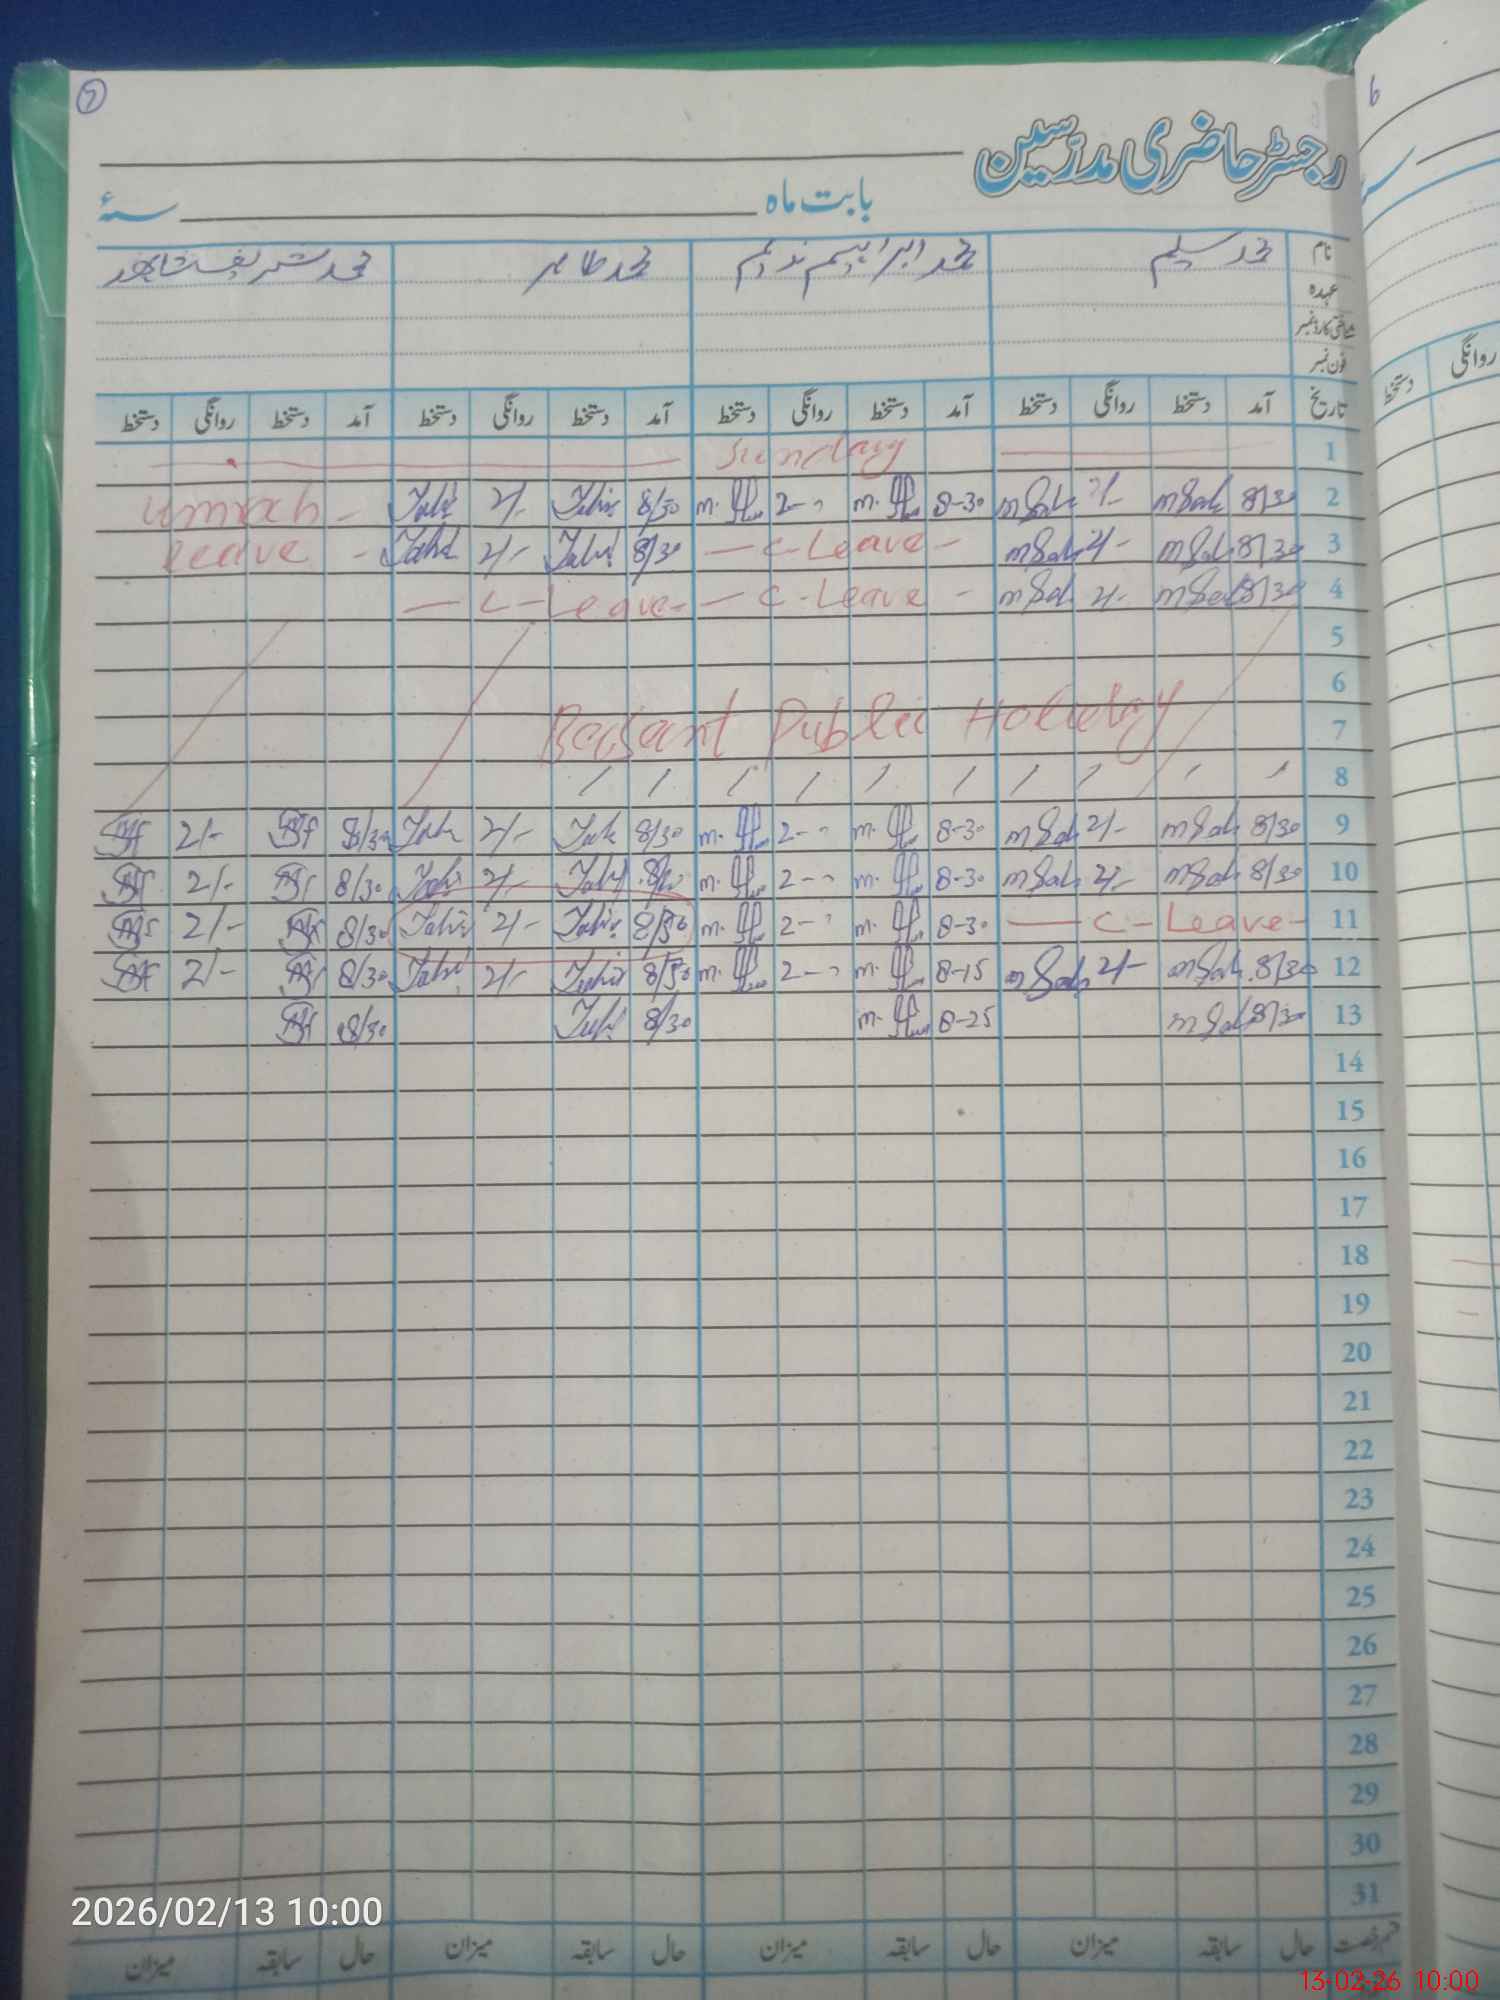 7
رجسٹر حاضری مدرسین
بابت ماہ سنۂ
نام محمد سلیم محمد ابراہیم ندیم محمد طاہر محمد شریف شاہد
عہدہ
شناختی کارڈ نمبر
فون نمبر
تاریخ آمد دستخط روانگی دستخط آمد دستخط روانگی دستخط آمد دستخط روانگی دستخط آمد دستخط روانگی دستخط
1 Sunday
2 8/30 2/- 8-30 2-- 8/30 Tahir 2/- Tahir ummrah
3 8/30 2/- C-Leave 8/30 Tahir 2/- Tahir leave
4 8/30 2/- C-Leave C-Leave
5
6
7 Basant Public Holiday
8
9 8/30 2/- 8-30 2-- 8/30 2/- 8/30 2/-
10 8/30 2/- 8-30 2-- Tahir 2/- Tahir 8/30 2/-
11 C-Leave 8-30 2-- 8/30 Tahir 2/- Tahir 8/30 2/-
12 8/30 2/- 8-15 2-- 8/30 Tahir 2/- Tahir 8/30 2/-
13 8/30 8-25 8/30 8/30
14
15
16
17
18
19
20
21
22
23
24
25
26
27
28
29
30
31
حال سابقہ میزان حال سابقہ میزان حال سابقہ میزان حال سابقہ میزان
روانگی
دستخط
6
2026/02/13 10:00
13-02-26 10:00